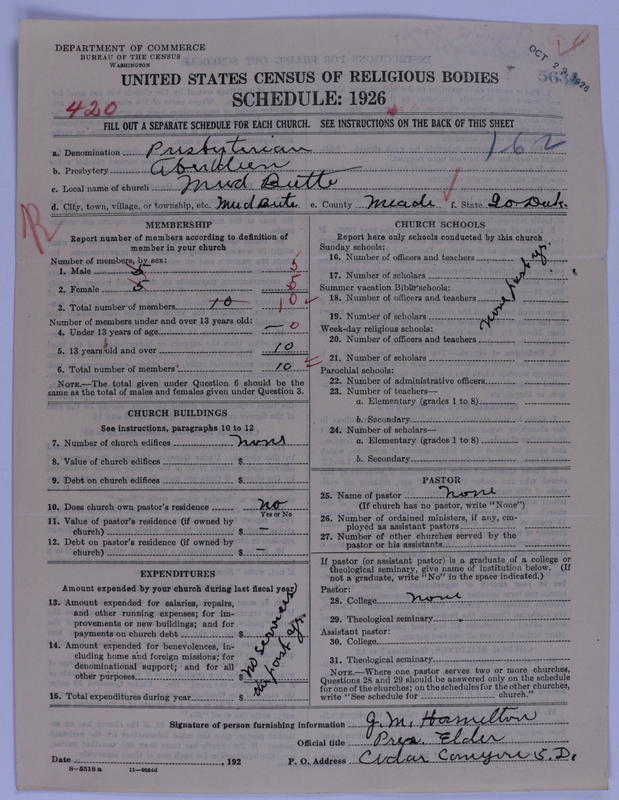 DEPARTMENT OF COMMERCE
BUREAU OF THE CENSUS
WASHINGTON
OCT 29 1926
UNITED STATES CENSUS OF RELIGIOUS BODIES
SCHEDULE: 1926
420
FILL OUT A SEPARATE SCHEDULE FOR EACH CHURCH. SEE INSTRUCTIONS ON THE BACK OF THIS SHEET
162
a. Denomination Presbyterian
b. Presbytery Aberdeen
c. Local name of church Mud Butte
d. City, town, village, or township, etc. Mud Bute e. County Meade f. State So Dak.
R
MEMBERSHIP
Report number of members according to definition of
member in your church
Number of members, by sex:
1. Male 5 5
2. Female 5 5
3. Total number of members 10 10
Number of members under and over 13 years old:
4. Under 13 years of age — 0
5. 13 years old and over 10
6. Total number of members 10
NOTE.—The total given under Question 6 should be
same as the total of males and females given under Question 3.
CHURCH BUILDINGS
See instructions, paragraphs 10 to 12
7. Number of church edifices none
8. Value of church edifices $
9. Debt on church edifices $
10. Does church own pastor's residence no
Yes or No
11. Value of pastor's residence (if owned by
church) $ —
12. Debt on pastor's residence (if owned by
church) $ —
EXPENDITURES
Amount expended by your church during last fiscal year
13. Amount expended for salaries, repairs,
and other running expenses; for im-
provements or new buildings; and for
payments on church debt $
14. Amount expended for benevolences, in-
cluding home and foreign missions; for
denominational support; and for all
other purposes $
15. Total expenditures during year $
no services
past yr.
CHURCH SCHOOLS
Report here only schools conducted by this church
Sunday schools:
16. Number of officers and teachers
17. Number of scholars
Summer vacation Bible schools:
18. Number of officers and teachers
19. Number of scholars
Week-day religious schools:
20. Number of officers and teachers
21. Number of scholars
none past yr.
Parochial schools:
22. Number of administrative officers
23. Number of teachers—
a. Elementary (grades 1 to 8)
b. Secondary
24. Number of scholars—
a. Elementary (grades 1 to 8)
b. Secondary
PASTOR
25. Name of pastor none
(If church has no pastor, write "None")
26. Number of ordained ministers, if any, em-
ployed as assistant pastors
27. Number of other churches served by the
pastor or his assistants
If pastor (or assistant pastor) is a graduate of a college or
theological seminary, give name of institution below. (If
not a graduate, write "No" in the space indicated.)
Pastor:
28. College none
29. Theological seminary
Assistant pastor:
30. College
31. Theological seminary
NOTE.—Where one pastor serves two or more churches,
Questions 28 and 29 should be answered only on the schedule
for one of the churches; on the schedules for the other churches,
write "See schedule for church."
Signature of person furnishing information J. M. Hamelton
Official title Pres. Elder
Date , 192 P. O. Address Cedar Canyon S. D.
8—5518 a 11—9284d